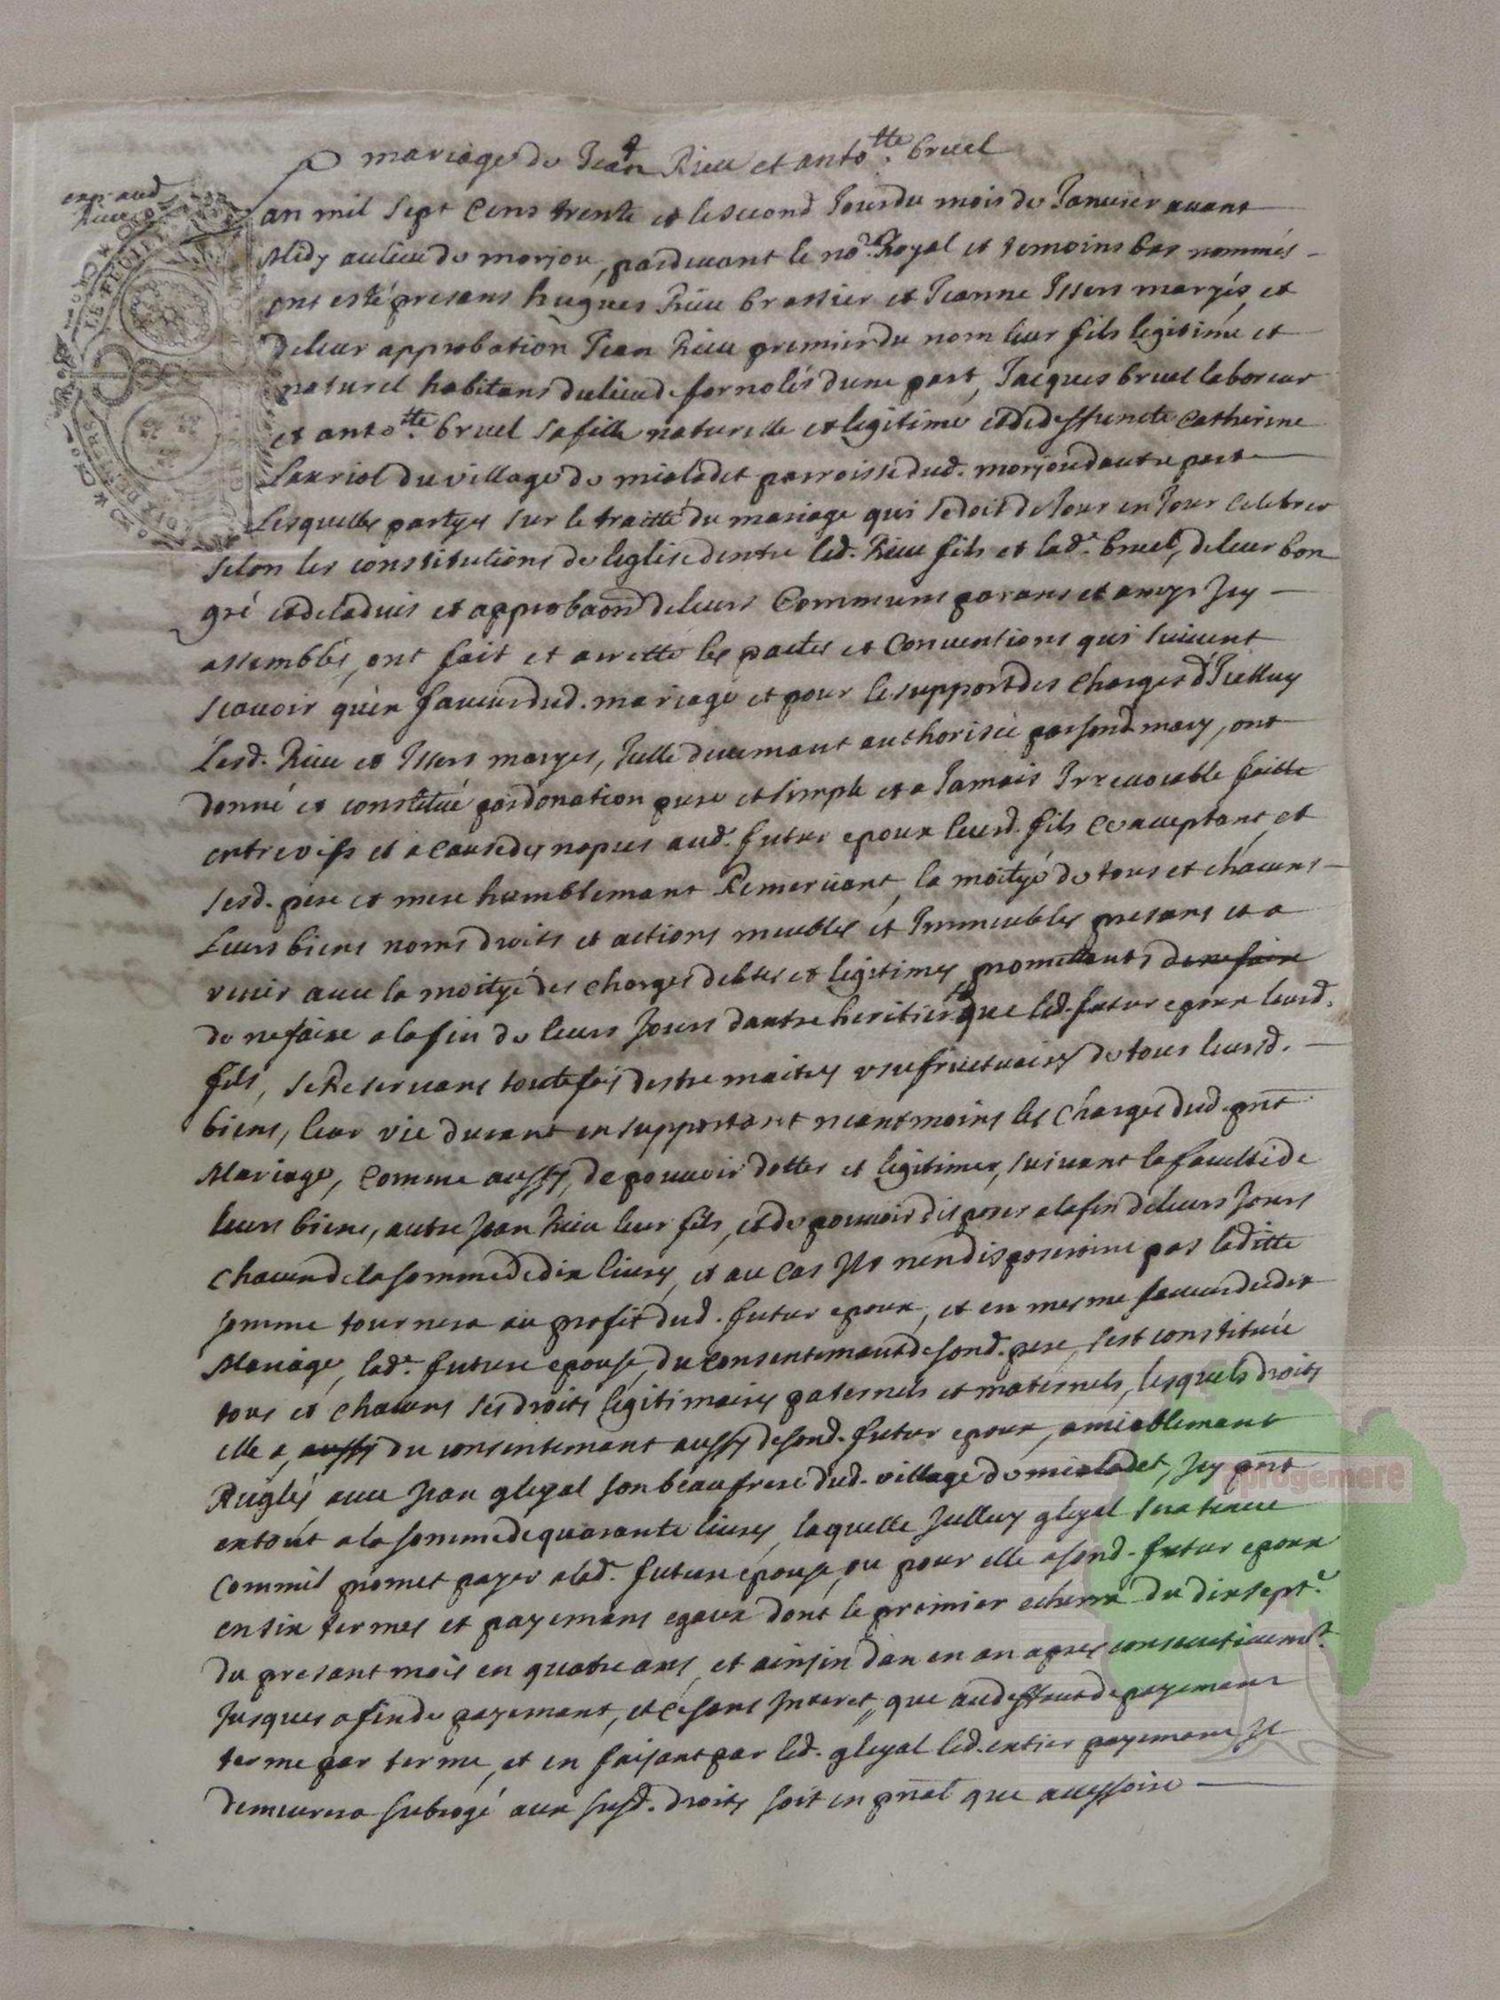 mariage de Jean Rieu et anto.tte bruel
exp. aud. Rieu
L'an mil sept cens trente et le second Jour du mois de Janvier avant
Midy au lieu de morjou, pardevant le no.re Royal et temoins bas nommés
ont esté presans hugues Rieu brassier et Jeanne Issers maryés et
de leur approbation Jean Rieu premier du nom leur fils legitime et
naturel habitans du lieu de fornolés d'une part, Jacques bruel laboreur
et anto.tte bruel sa fille naturelle et legitime et de deffuncte Catherine
Lauriol du village de mialadet parroisse dud. morjou d'autre part
Lesquelles partyes sur le traitté du mariage qui se doit de Jour en Jour Celebrer
selon les constitutions de leglise dentre led. Rieu fils et lad.e bruel, de leur bon
gré et de ladvis et approbaõn de leurs Communs parans et amys Icy
assemblés, ont fait et arretté les pactes et Conventions qui suivent
scavoir qu'en faveur dud. mariage et pour le support des Charges d'Icelluy
Lesd. Rieu et Issers maryes, Icelle duemant authorisée par sond. mary, ont
donné et constitué par donation pure et simple et a Jamais Irrevocable faitte
entre vifs et a cause de nopces aud. futur epoux leurd. fils Ce acceptant et
sesd. pere et mere humblemant Remerciant, la moityé de tous et chacuns
Leurs biens noms droits et actions meubles et Immeubles presans et a
venir avec la moityé des charges debtes et legitimes promettants de ne faire
de ne faire a la fin de leurs Jours dautre heritier que led. futur epoux leurd.
fils, se Reservans toutefois destre maitres usufructuaires de tous leursd.
biens, leur vie durant en supportant neantmoins les Charges dud. pñt
Mariage, Comme aussy, de pouvoir dotter et legitimer, suivant la faculté de
leurs biens, autre Jean Rieu leur fils, et de pouvoir disposer a la fin de leurs Jours
chacun de la somme de dix livres, et au cas Ils n'en disposeroint pas laditte
somme tournera au profit dud. futur epoux, et en mesme faveur dudit
Mariage, lad.e future epouse, du Consentemant de sond. pere, s'est constituée
tous et chacuns ses droits legitimaires paternels et maternels, lesquels droits
elle a, aussy du consentemant aussy de sond. futur epoux, amiablemant
Reglés avec Jean gleyal son beaufrere dud. village de mialadet, Icy pñt
en tout a la somme de quarante livres, laquelle Icelluy gleyal sera tenu
comm'il promet payer a lad.e future epouse, ou pour elle a sond. futur epoux
en six termes et payemans egaux dont le premier echerra du dix sept.e
du presant mois en quatre ans, et ainsin d'an en an apres consecutivem.t
Jusques a fin de payemant, et ce sans Interet, que au deffaut de payemant
terme par terme, et en faisant par led. gleyal led. entier payemant Il
demeurera subrogé aux susd. droits soit en pñal que accessoire
aprogemere